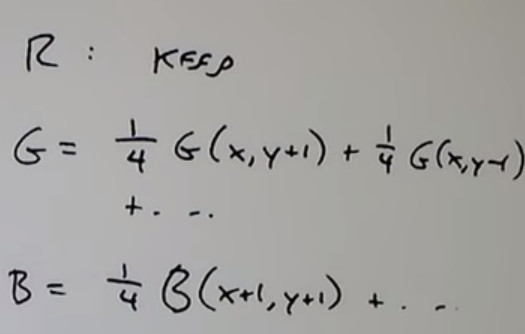 R : KEEP
G = 1/4 G(x, y+1) + 1/4 G(x, y-1)
+ . . .
B = 1/4 B(x+1, y+1) + . . .